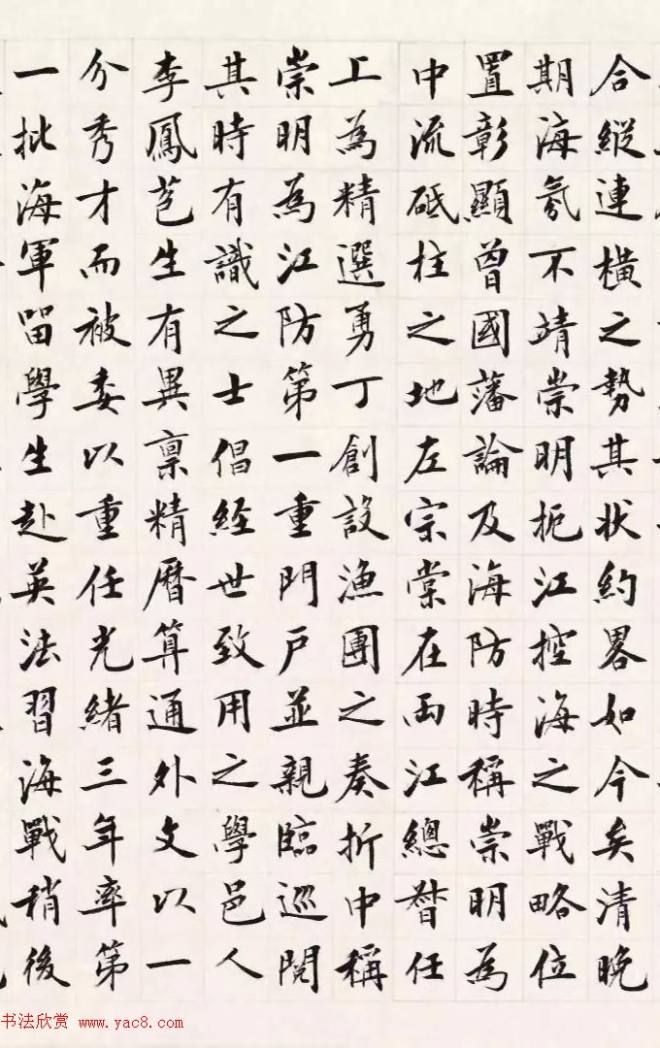 合縱連橫之勢其狀約畧如今矣清晚
期海氛不靖崇明扼江控海之戰略位
置彰顯曾國藩論及海防時稱崇明為
中流砥柱之地左宗棠在兩江總督任
上為精選勇丁創設漁團之奏折中稱
崇明為江防第一重門戶並親臨巡閱
其時有識之士倡經世致用之學邑人
李鳳苞生有異禀精曆算通外文以一
介秀才而被委以重任光緒三年率第
一批海軍留學生赴英法習海戰稍後
书法欣赏 www.yac8.com